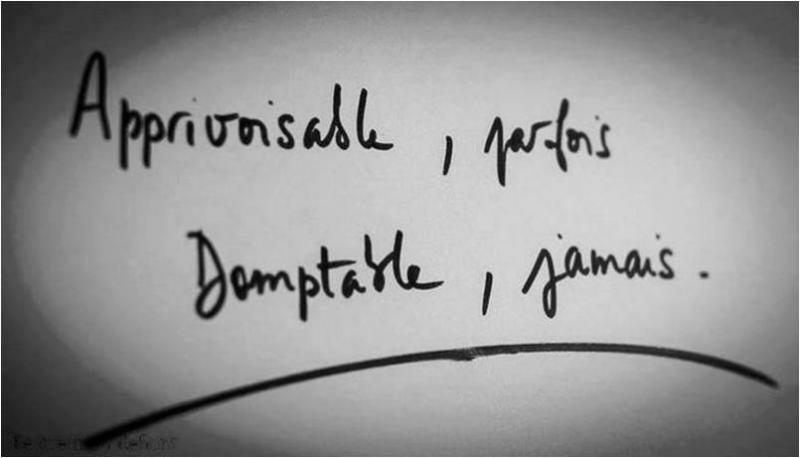 Apprivoisable, parfois
Domptable, jamais.